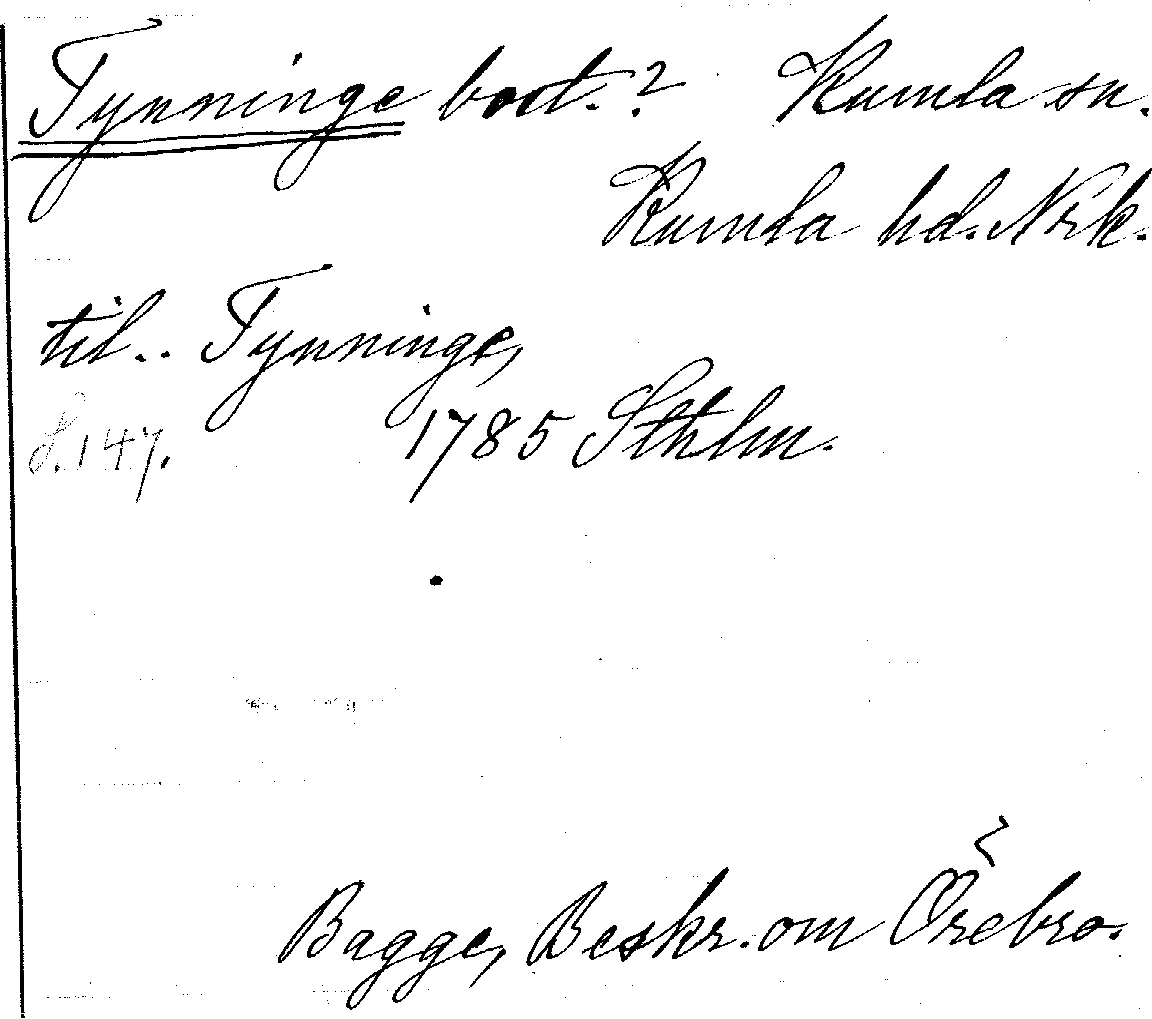 Tynninge bort.? Kumla sn.
Kumla hd. Nrk.
til.. Tynninge,
S. 147. 1785 Sthlm.
Bagge, Beskr. om Örebro.